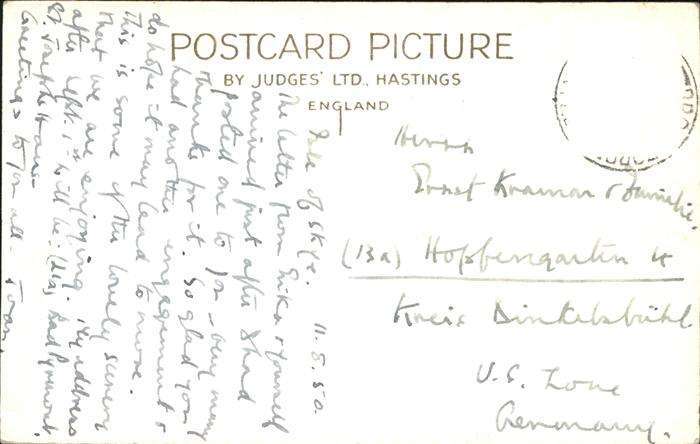 POSTCARD PICTURE
BY JUDGES' LTD., HASTINGS
ENGLAND
Isle of Skye. 11.8.50
The letter from Erika & yourself
arrived just after I had
posted one to you – very many
thanks for it. So glad you
had another engagement &
do hope it may lead to more.
This is some of the lovely scenery
that we are enjoying. My address
after Sept. 1st will be:
St. Joseph's
Greetings to you all – Joan.
Herrn
Ernst Kramar & Familie.
(13a) Hopfengarten 4
Kreis Dinkelsbühl
U.S. Zone
Germany.